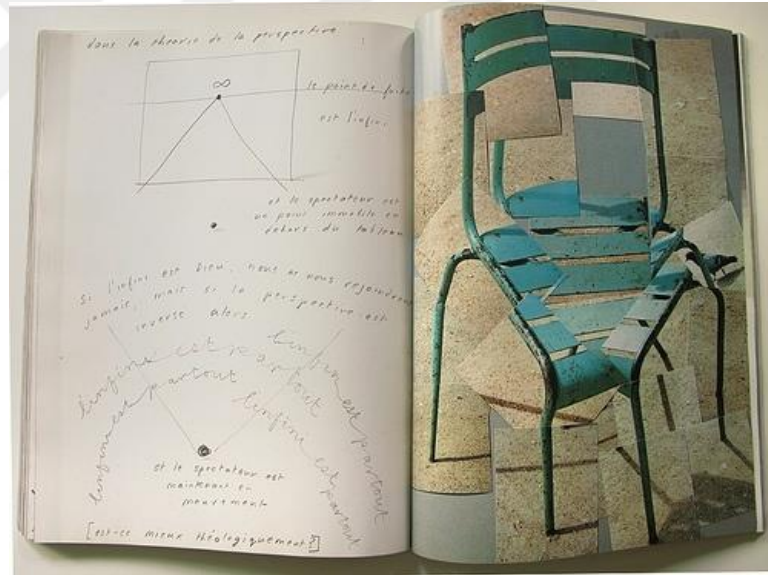 dans la théorie de la perspective
∞
le point de fuite
est l'infini.
et le spectateur est
un point immobile en
dehors du tableau
Si l'infini est Dieu, nous ne nous rejoindrons
jamais, mais si la perspective est
inverse alors
l'infini est partout
l'infini est partout
l'infini est partout
l'infini est partout
et le spectateur est
maintenant en
mouvement
[est-ce mieux théologiquement?]